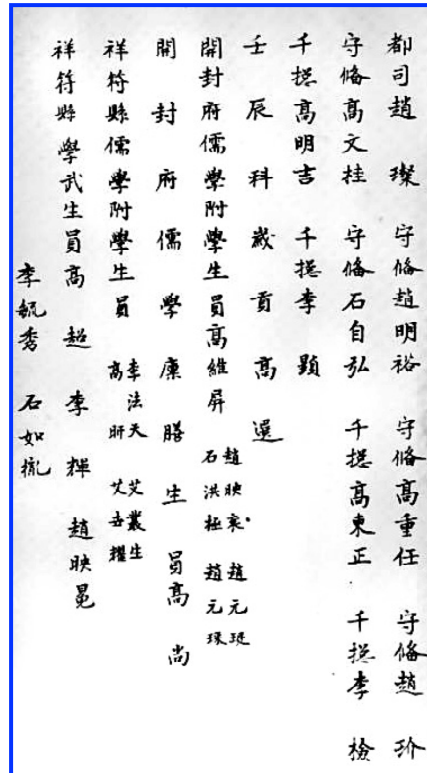 都司趙璨 守俻趙明裕 守俻高重任 守俻趙玠
守俻高文桂 守俻石自弘 千揔高東正 千揔李檢
千揔高明吉 千揔李顯
壬辰科歲貢高選
開封府儒學附學生員高維屏 趙映袞 趙元珽 石洪極 趙元琛
開封府儒學廩膳生員高尚
祥符縣儒學附學生員 李法天 艾叢生 高昕 艾吾耀
祥符縣學武生員高超 李輝 趙映冕
李毓秀 石如